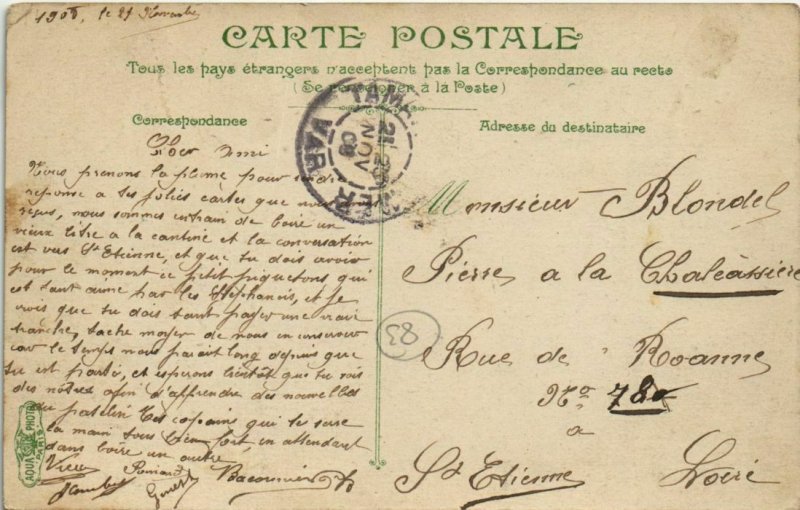 1908, le 27 Novembre
CARTE POSTALE
Tous les pays étrangers n'acceptent pas la Correspondance au recto
(Se renseigner à la Poste)
Correspondance
Cher Ami
Nous prenons la plume pour rendre
reponse a tes jolies cartes que nous avons
reçus, nous sommes entrain de boire un
vieux litre a la cantine et la conversation
est vers St Etienne, et que tu dois avoir
pour le moment ce petit piquetons qui
est tant aimé par les Stéphanois, et je
crois que tu dois tant payer une vraie
tranche, tache moyen de nous en conserver
car le temps nous parait long depuis que
tu est parti, et esperons bientôt que tu sois
des nôtres afin d'affrendre des nouvelles
du pastein Tes copains qui te serre
la main tous bien fort, en attendant
dans boire un autre
AQUA PHOTO
PARIS
TAM
VAR
NOV
08
Adresse du destinataire
Monsieur Blondel
Pierre a la Chaléassière
Rue de Roanne
No 78
a
St Etienne Loire